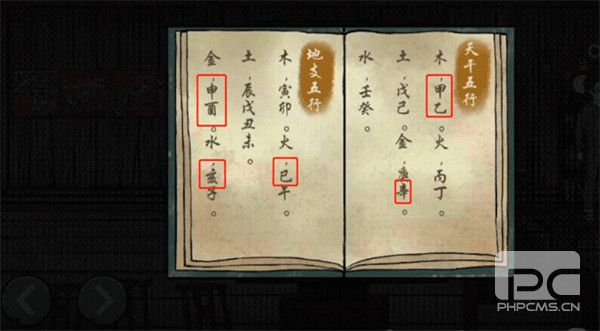 天干五行
木，甲乙。火，丙丁。
土，戊己。金，庚辛。
水，壬癸。
地支五行
木，寅卯。火，巳午。
土，辰戌丑未。
金，申酉。水，亥子。
PC
PHPCMS.CN